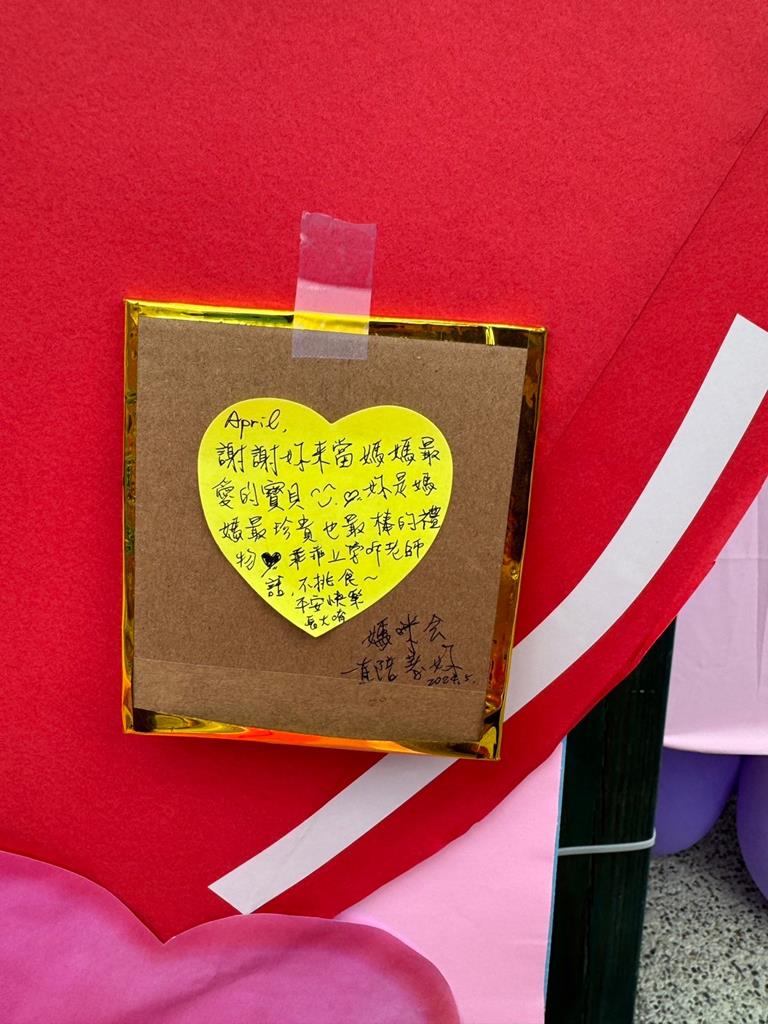 April,
謝謝妳來當媽媽最
愛的寶貝 妳是媽
媽最珍貴也最棒的禮
物♥乖乖上學听老師
話,不挑食~
平安快樂
長大唷
媽咪会
一直陪著妳
2024.5.